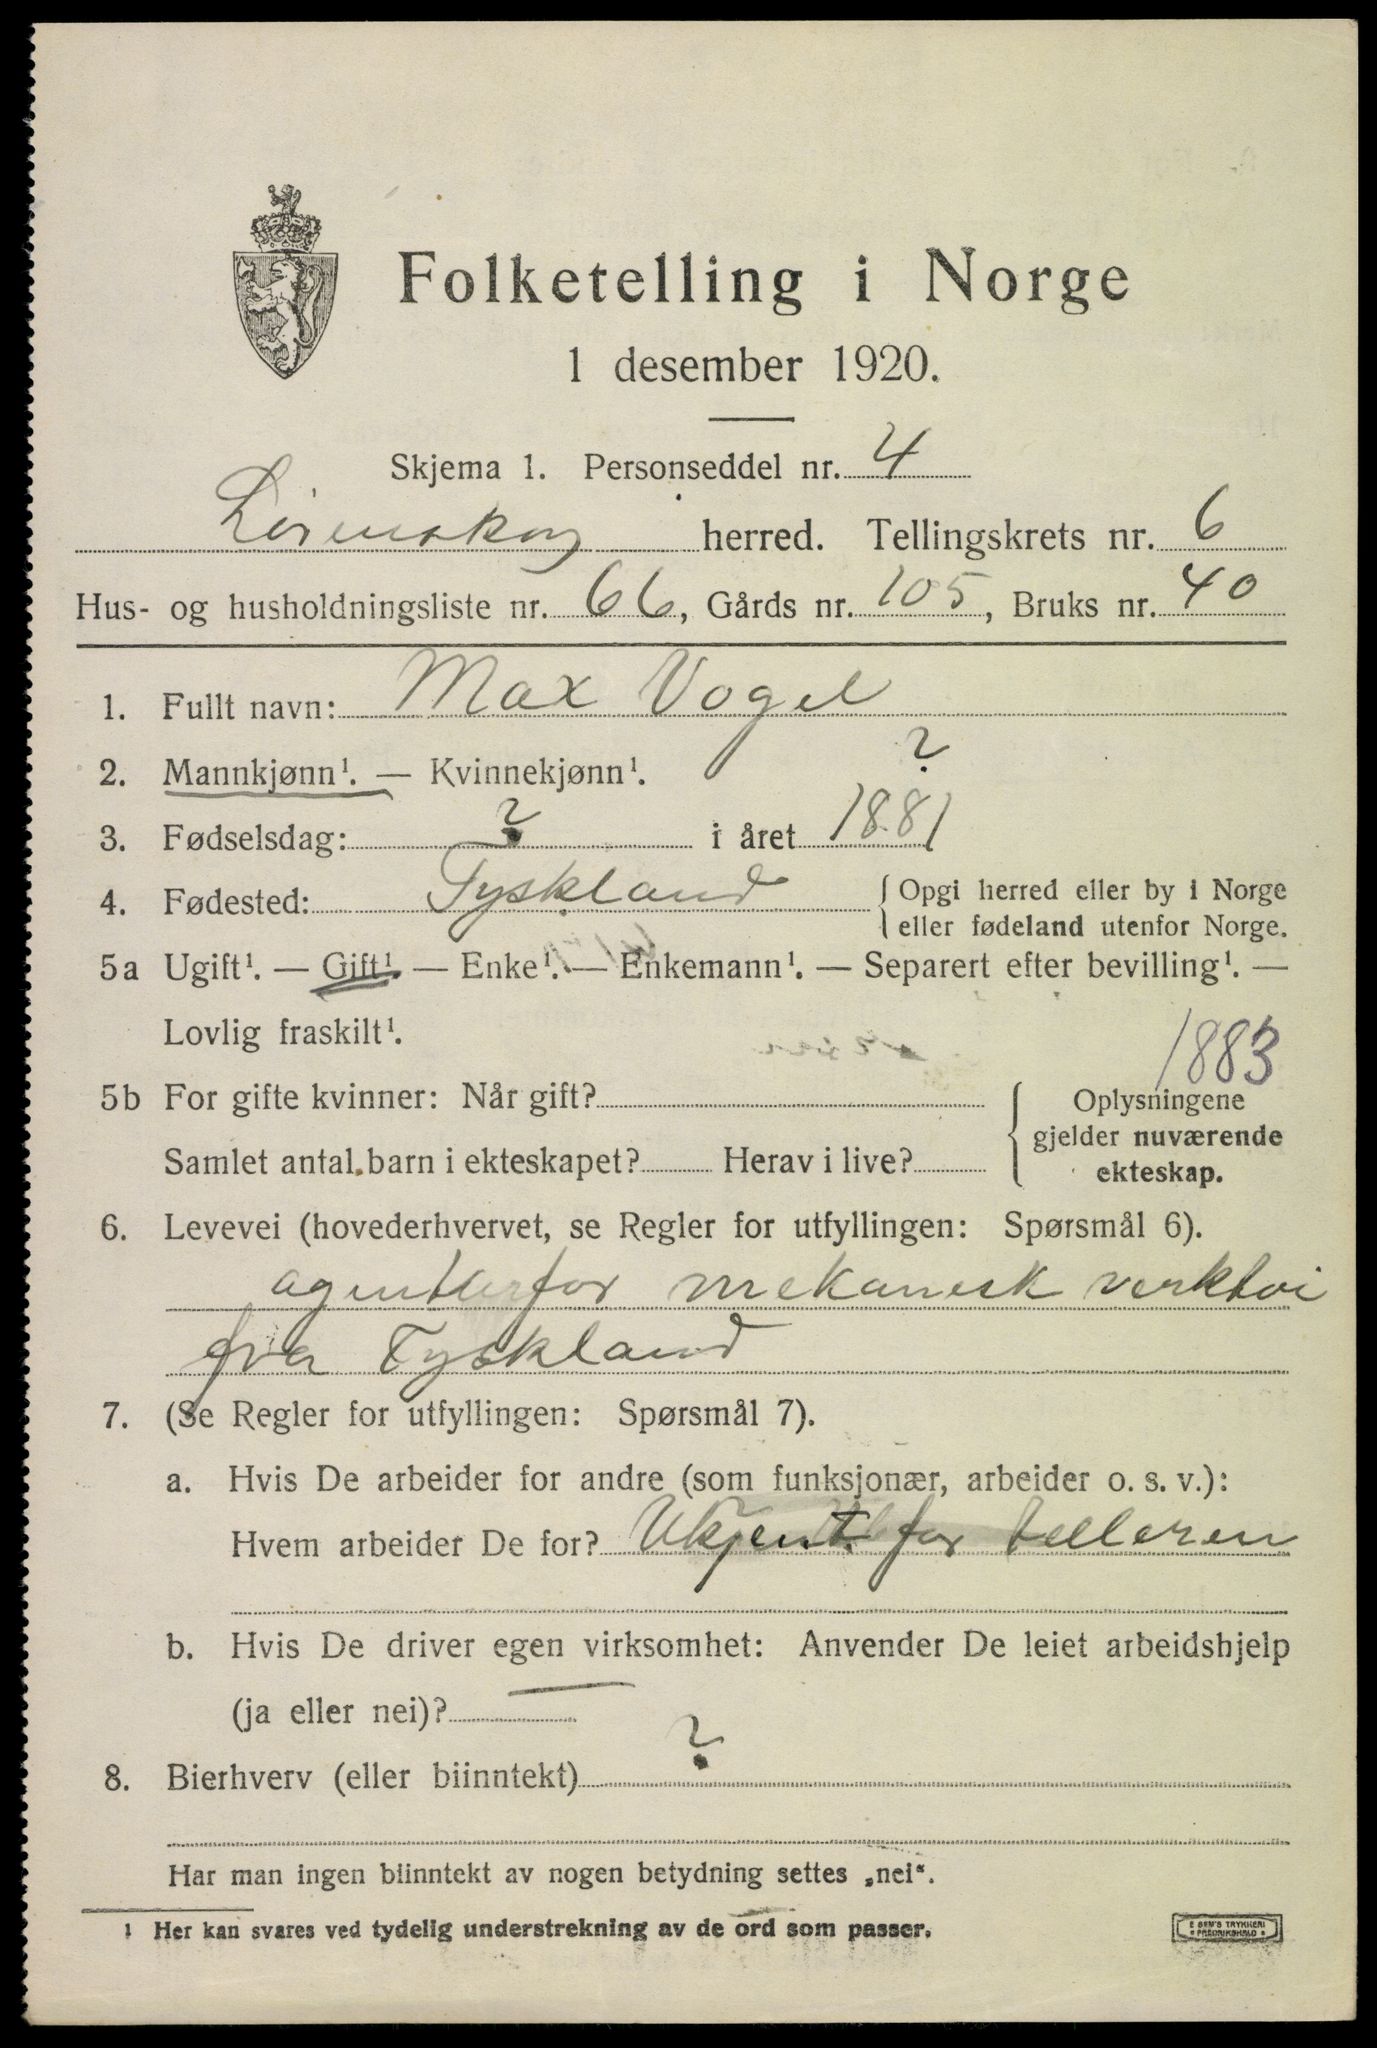 Folketelling i Norge
1 desember 1920.
Skjema 1. Personseddel nr. 4
Lørenskog herred. Tellingskrets nr. 6
Hus- og husholdningsliste nr. 66, Gårds nr. 105, Bruks nr. 40
1. Fullt navn: Max Vogel
2. Mannkjønn¹. — Kvinnekjønn¹. ?
3. Fødselsdag: ? i året 1881
4. Fødested: Tyskland { Opgi herred eller by i Norge
eller fødeland utenfor Norge.
5a Ugift¹. — Gift¹. — Enke¹. — Enkemann¹. — Separert efter bevilling¹. —
Lovlig fraskilt¹.
1883
5b For gifte kvinner: Når gift? { Oplysningene
gjelder nuværende
Samlet antal barn i ekteskapet? Herav i live? ekteskap.
6. Levevei (hovederhvervet, se Regler for utfyllingen: Spørsmål 6).
agentur for mekanisk verktøi
fra Tyskland
7. (Se Regler for utfyllingen: Spørsmål 7).
a. Hvis De arbeider for andre (som funksjonær, arbeider o. s. v.):
Hvem arbeider De for? Ukjent for telleren
b. Hvis De driver egen virksomhet: Anvender De leiet arbeidshjelp
(ja eller nei)? —
8. Bierhverv (eller biinntekt) ?
Har man ingen biinntekt av nogen betydning settes „nei“.
1 Her kan svares ved tydelig understrekning av de ord som passer.
E SEM'S TRYKKERI
FREDRIKSHALD